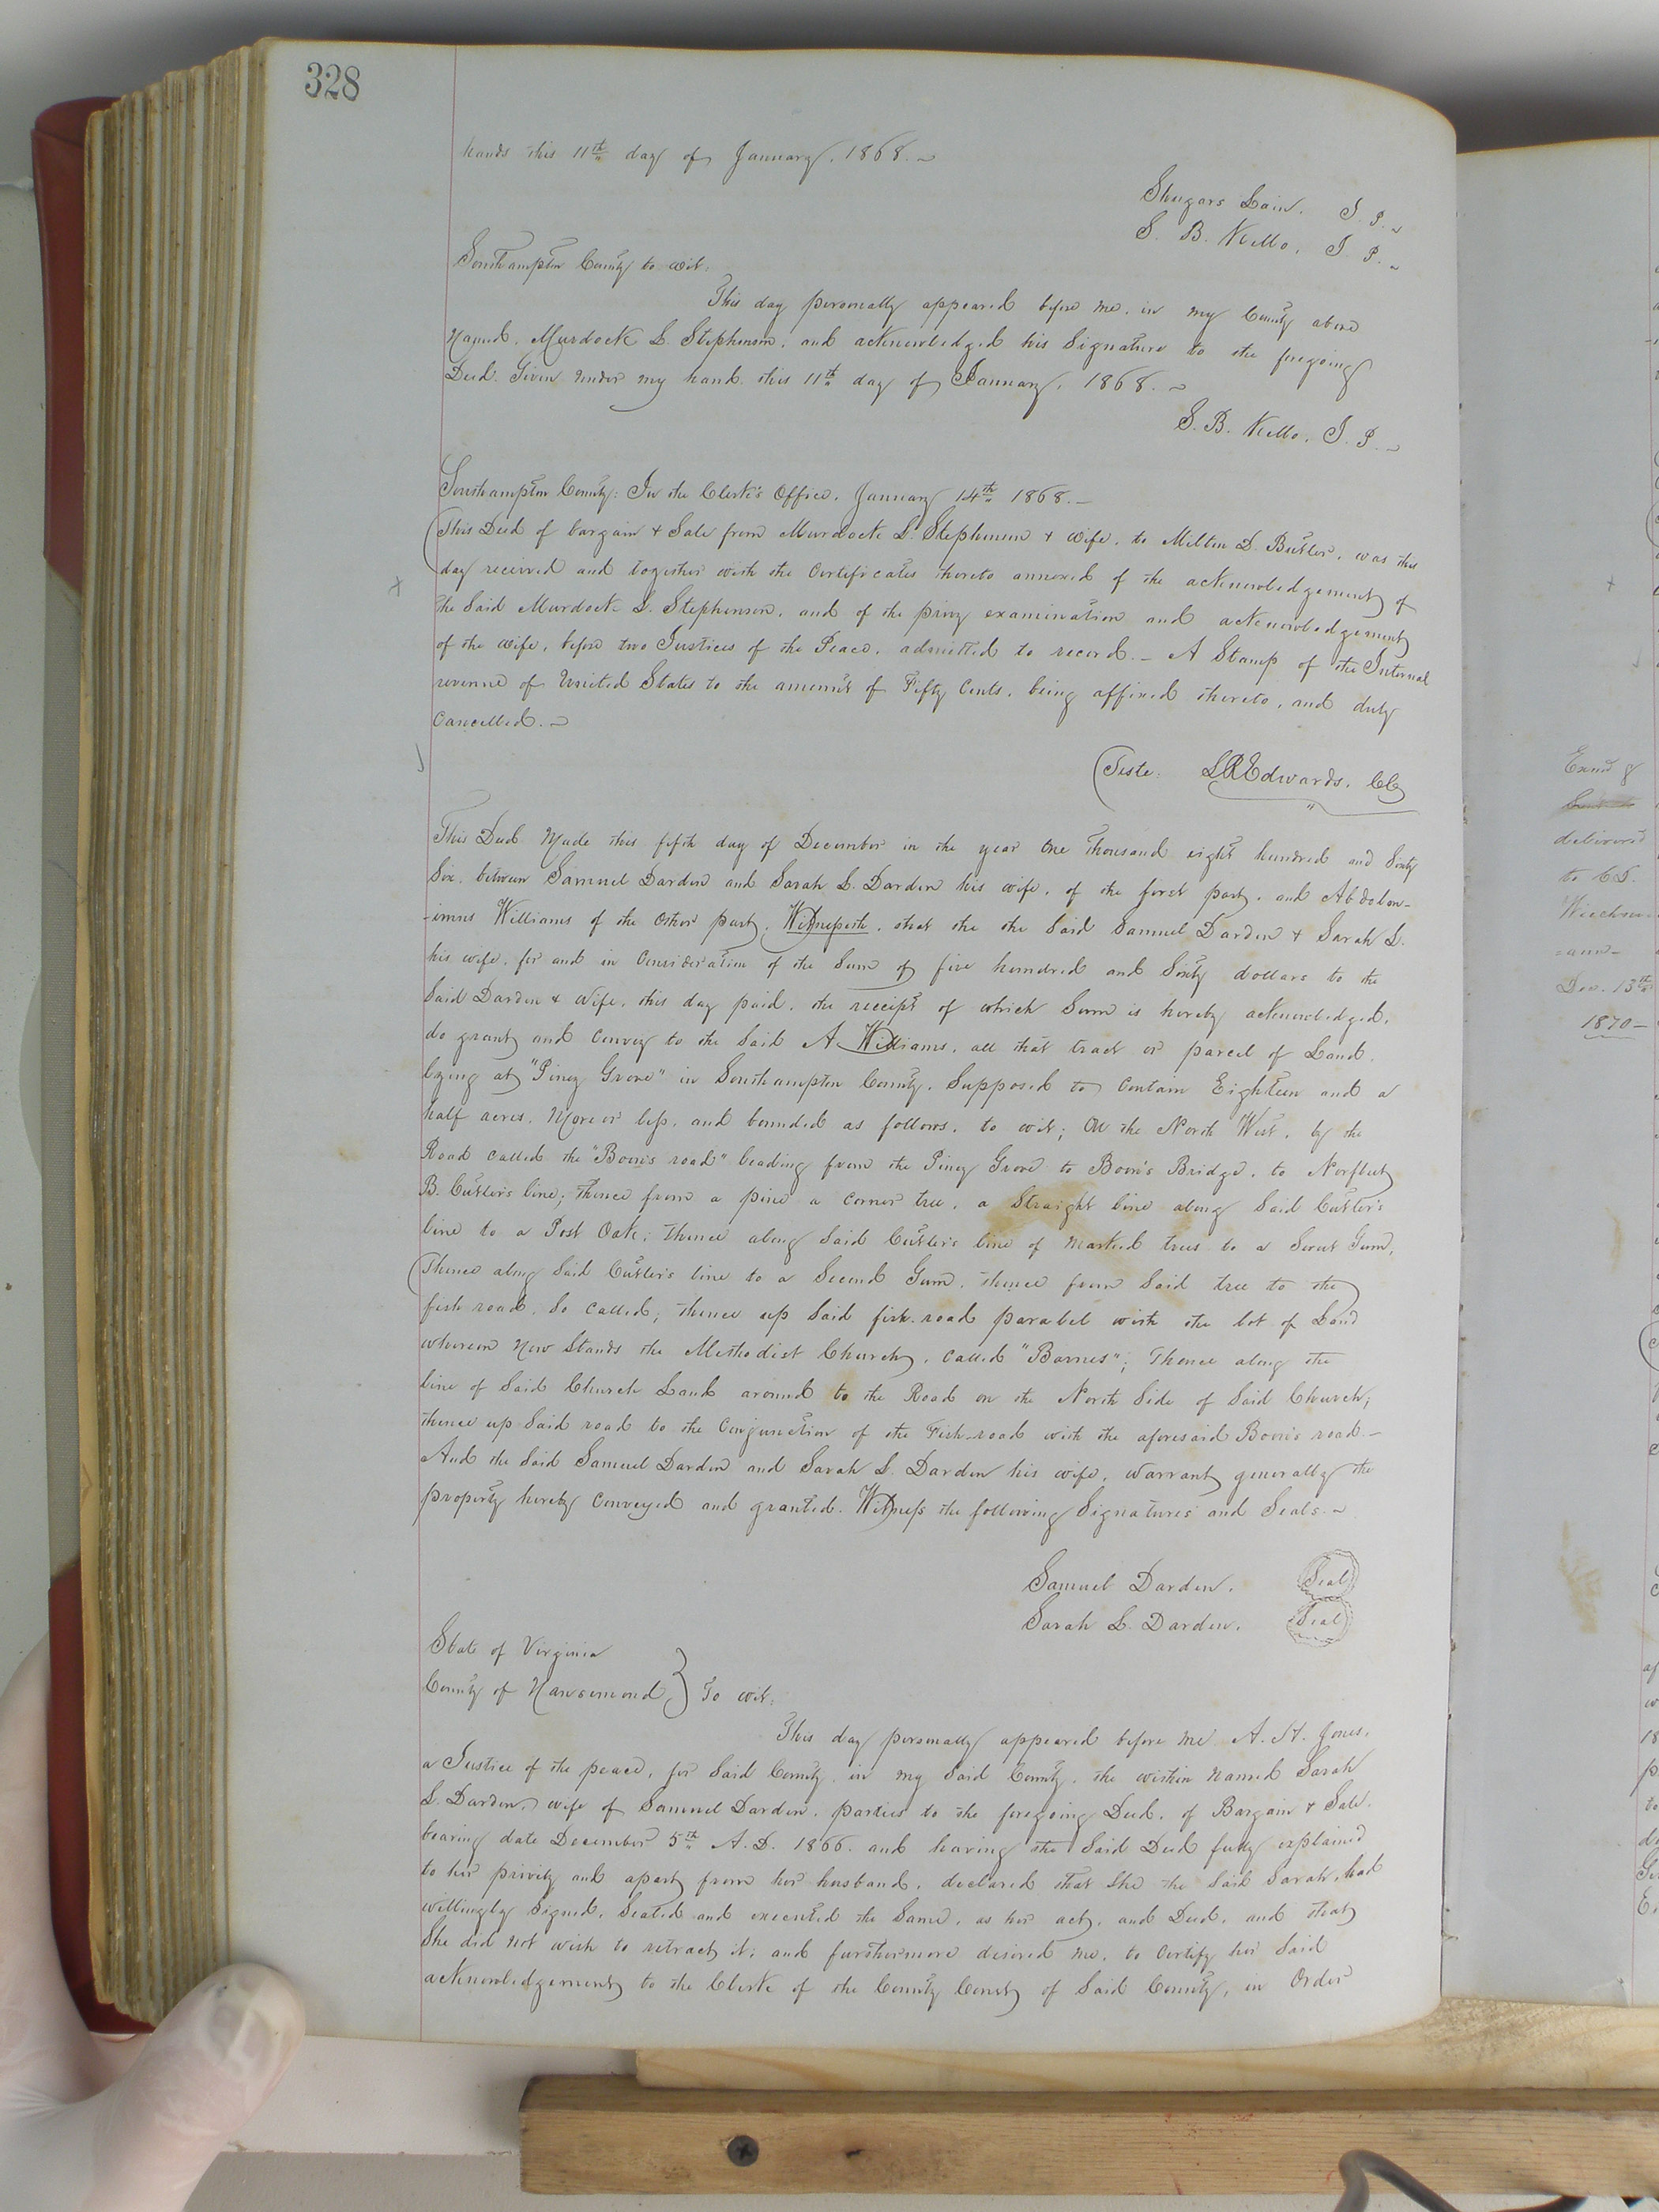 328
hands this 11th day of January, 1868.
Shugars Lain. J. P.
S. B. Kello, J. P.
Southampton County to wit:
This day personally appeared before me, in my County above
Named, Murdock L. Stephenson, and acknowledged his Signature to the foregoing
Deed. Given under my hand this 11th day of January, 1868.
S. B. Kello, J. P.
Southampton County: In the Clerk's Office, January 14th 1868.
This Deed of bargain & Sale from Murdock L. Stephenson & wife, to Milton D. Butler, was this
day received and together with the Certificates thereto annexed of the acknowledgement of
the Said Murdock L. Stephenson, and of the privy examination and acknowledgement
of the wife, before two Justices of the Peace, admitted to record. – A Stamp of the Internal
revenue of United States to the amount of Fifty Cents, being affixed thereto, and duly
Cancelled.
Teste: LREdwards, CC
This Deed Made this fifth day of December in the year One Thousand eight hundred and Sixty
Six, between Samuel Darden and Sarah L. Darden his wife, of the first part, and Abdolon-
-imus Williams of the Other part, Witnesseth, that the the Said Samuel Darden & Sarah L.
his wife, for and in Consideration of the Sum of five hundred and Sixty dollars to the
Said Darden & Wife, this day paid, the receipt of which Sum is hereby acknowledged,
do grant and Convey to the Said A Williams, all that tract or parcel of Land,
lying at "Piney Grove" in Southampton County, Supposed to Contain Eighteen and a
half acres, More or less, and bounded as follows, to wit; On the North West, by the
Road called the "Boon's road" leading from the Piney Grove to Boon's Bridge, to Norfleet
B. Cutler's line; thence from a pine a corner tree, a Straight line along Said Cutler's
line to a Post Oak; thence along Said Cutler's line of Marked trees to a Sweet Gum,
Thence along Said Cutler's line to a Second Gum, thence from Said tree to the
fish road, So Called; thence up Said fish-road paralel with the lot of Land
whereon Now Stands the Methodist Church, Called "Barnes"; Thence along the
line of Said Church Land around to the Road on the North Side of Said Church;
thence up Said road to the Conjunction of the Fish-road with the aforesaid Boon's road. –
And the Said Samuel Darden and Sarah L. Darden his wife, Warrant generally the
property hereby Conveyed and granted. Witness the following Signatures and Seals.
Samuel Darden. Seal
Sarah L. Darden. Seal
State of Virginia
County of Nansemond, } To wit:
This day personally appeared before me A. H. Jones,
a Justice of the peace, for Said County, in my Said County, the within Named Sarah
L. Darden, wife of Samuel Darden, parties to the foregoing Deed, of Bargain & Sale,
bearing date December 5th A. D. 1866. and having the Said Deed fully explained
to her privily and apart from her husband, declared that She the Said Sarah, had
willingly Signed, Sealed and executed the Same, as her act, and Deed, and that
She did not wish to retract it; and furthermore desired me, to Certify her Said
acknowledgement to the Clerk of the County Court of Said County, in Order
Exmd &
delivered
to
Dec. 13th
1870–